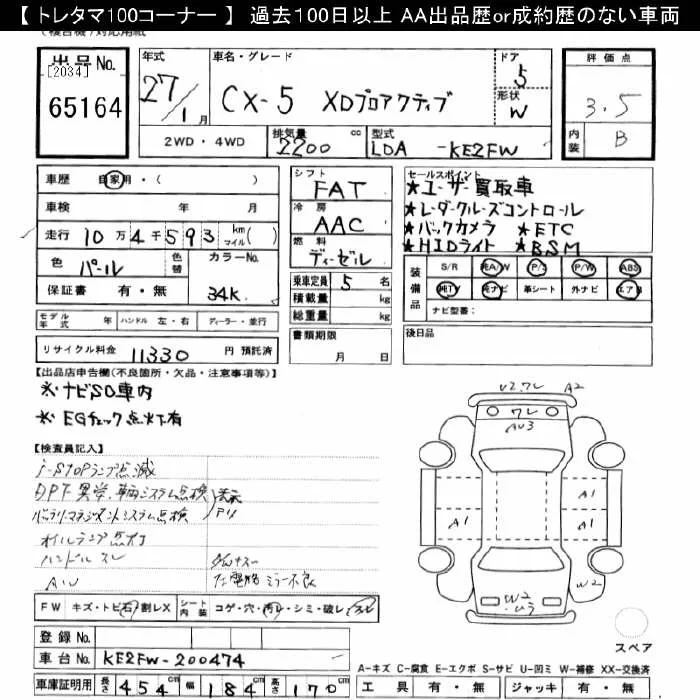 【 トレタマ100コーナー 】 過去100日以上 AA出品歴or成約歴のない車両
出品No.
[2034]
65164
年式
27/1月
車名・グレード
CX-5 XDプロアクティブ
ドア
5
形状
W
評価点
3.5
内装
B
2WD・4WD
排気量 2200 cc
型式 LDA-KE2FW
車歴 自家用・( )
車検 年 月
走行 10万4千593 km マイル( )
色 パール 色替 カラーNo. 34K
保証書 有・無
モデル年式 年 ハンドル 左・右 ディーラー・並行
リサイクル料金 11330 円 預託済
シフト
FAT
冷房
AAC
燃料
ディーゼル
乗車定員 5 名
積載量 kg
総重量 kg
書類期限
月 日
セールスポイント
★ユーザー買取車
★レーダークルーズコントロール
★バックカメラ ★ETC
★HIDライト ★BSM
装備品
S/R 純A/W P/S P/W ABS
純TV 純ナビ 革シート 外ナビ エアB
ナビ型番:
後日品
【出品店申告欄(不良箇所・欠品・注意事項等)】
※ナビSD車内
※EGチェック点灯有
【検査員記入】
i-STOPランプ点滅
DPF異常、車両システム点検
バッテリーマネジメントシステム点検
表示アリ
オイルランプ点灯
ハンドル スレ
A/W
左電格ミラー不良
FW キズ・トビ石・割レX
シート内装 コゲ・穴・汚レ・シミ・破レ・スレ
登録No.
車台No. KE2FW-200474
車庫証明用 長さ 454 cm 幅 184 cm 高さ 170 cm
U2.ワレ A2
ワレ
AU3
A1
A1
A1
W2
W2
スペア
A-キズ C-腐食 E-エクボ S-サビ U-凹ミ W-補修 XX-交換済
工具 有・無 ジャッキ 有・無